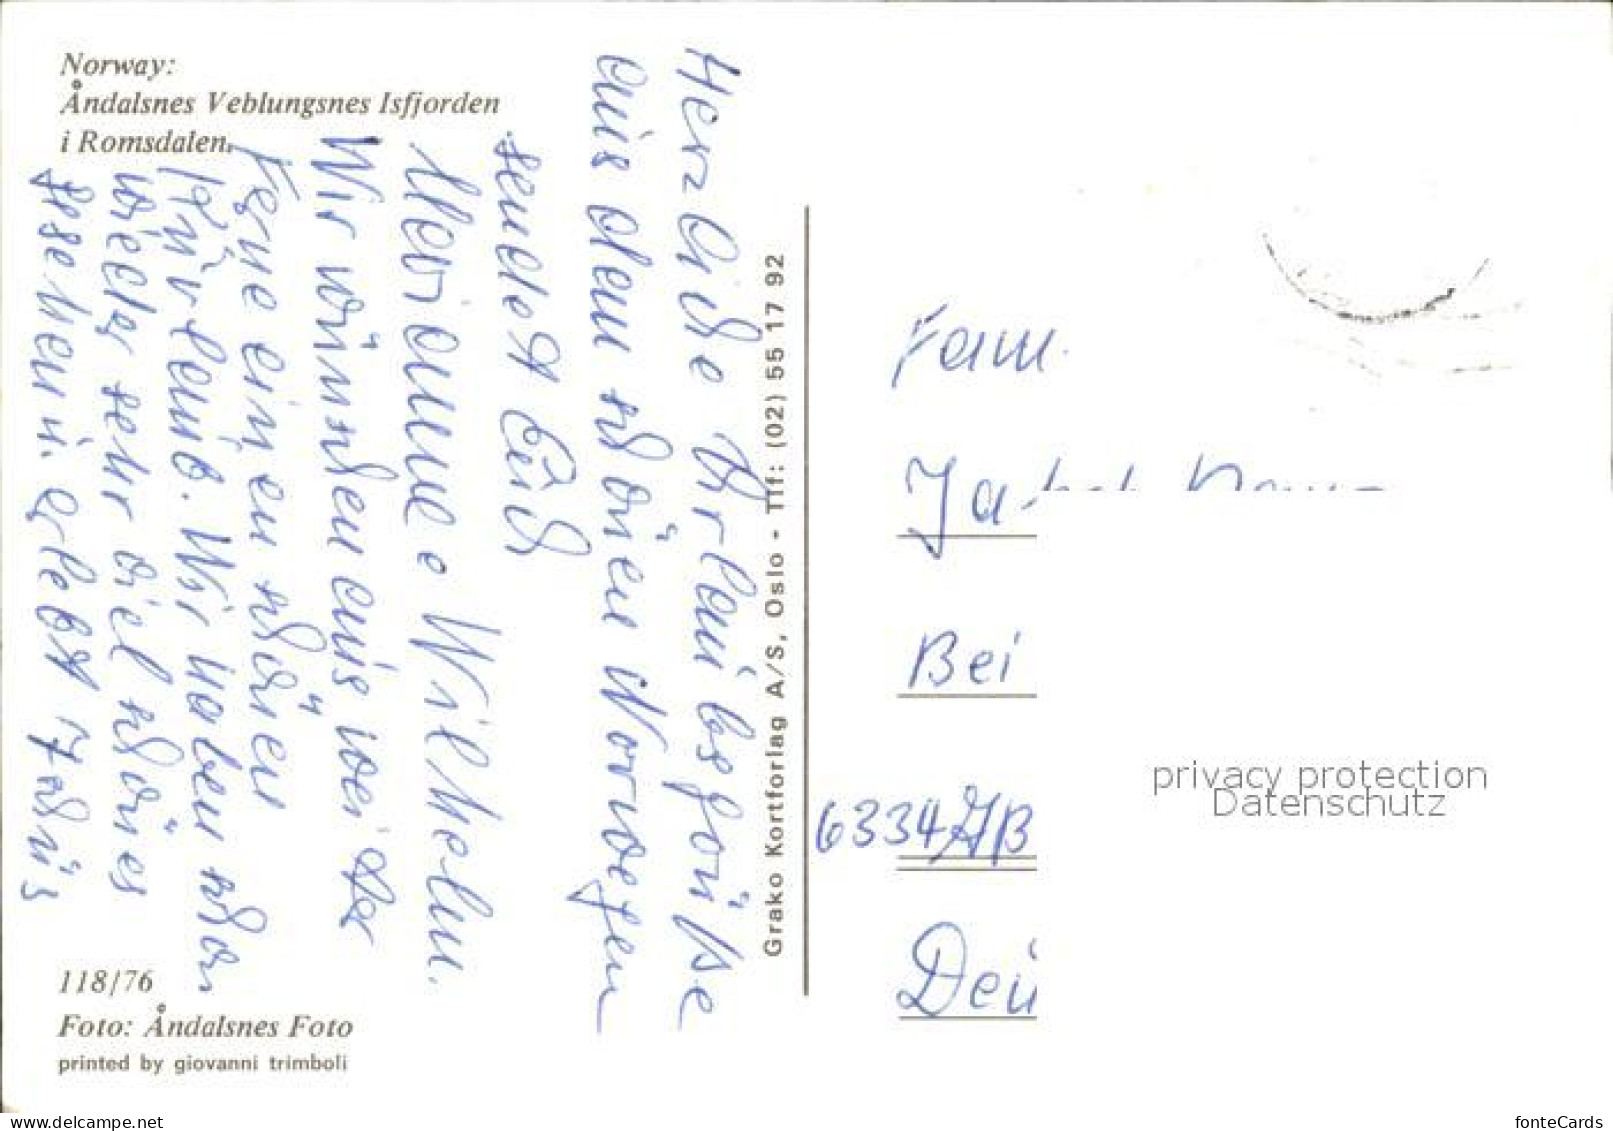 Norway:
Åndalsnes Veblungsnes Isfjorden
i Romsdalen.
Herzliche Urlaubsgrüße
aus dem schönen Norwegen
sendet Euch
Marianne e Wilhelm.
Wir wünschen euch weiter
Gerne einen schönen
Urlaub. Wir haben schon
wieder sehr viel schönes
gesehen u. erlebt Tschüs
118/76
Foto: Åndalsnes Foto
printed by giovanni trimboli
Grako Kortforlag A/S, Oslo - Tlf: (02) 55 17 92
Fam.
Ja
Bei
6334
Deu
privacy protection
Datenschutz
www.ansichtskartenversand.com
fonteCards